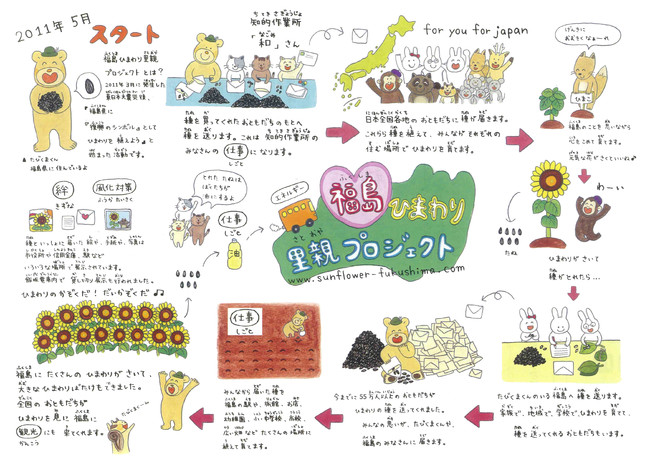 2011年 5月
スタート
福島ひまわり里親
プロジェクトとは?
2011年3月に発生した
東日本大震災後、
福島県に
『復興のシンボル』として
ひまわりを植えよう』と
始まった活動です。
▲たびくまくん
福島県に住んでいるよ
知的作業所
ちてきさぎょうしょ
「和」さん
なごみ
種を買ってくれたおともだちのもとへ
種を送ります。これは知的作業所の
みなさんの仕事になります。
しごと
for you for japan
日本全国各地のおともだちに種が届きます。
これから種を植えて、みんながそれぞれの
住む場所でひまわりを育てます。
げんきに
おおきくなぁーれ
ひまこ
福島のことを思いながら
心をこめて育てます。
元気な花がさくといいね♪
わーい
たね
ひまわりがさいて
種がとれたら…
たびくまくんのいる福島へ種を送ります。
家族で、地域で、学校でひまわりを育てて、
種を送ってくれるおともだちもいます。
今までに55万人以上のおともだちが
ひまわりの種を送ってくれました。
みんなの思いが、たびくまくんや、
福島のみなさんに届きます。
仕事
しごと
みんなから届いた種を
福島の駅や、旅館、お店、
幼稚園、小中学校、高校、
広い畑などたくさんの場所に
植えて育てます。
ひまわりのかぞくだ!だいかぞくだ♪♫
福島にたくさんのひまわりがさいて、
大きなひまわりばたけもできました。
全国のおともだちが
ひまわりを見に福島に
観光にも来てくれます。
かんこう
たびくまくーん
絆
きずな
風化対策
ふうかたいさく
種といっしょに届いた絵や、手紙や、写真は
市役所や信用金庫、駅など
いろいろな場所で展示されています。
飯坂電車で貸し切り展示も行われました。
とれたたねは
ばくだうが
わにするよ
仕事
しごと
油
エネルギー
福島ひまわり
ふくしま
里親プロジェクト
さとおや
www.sunflower-fukushima.com